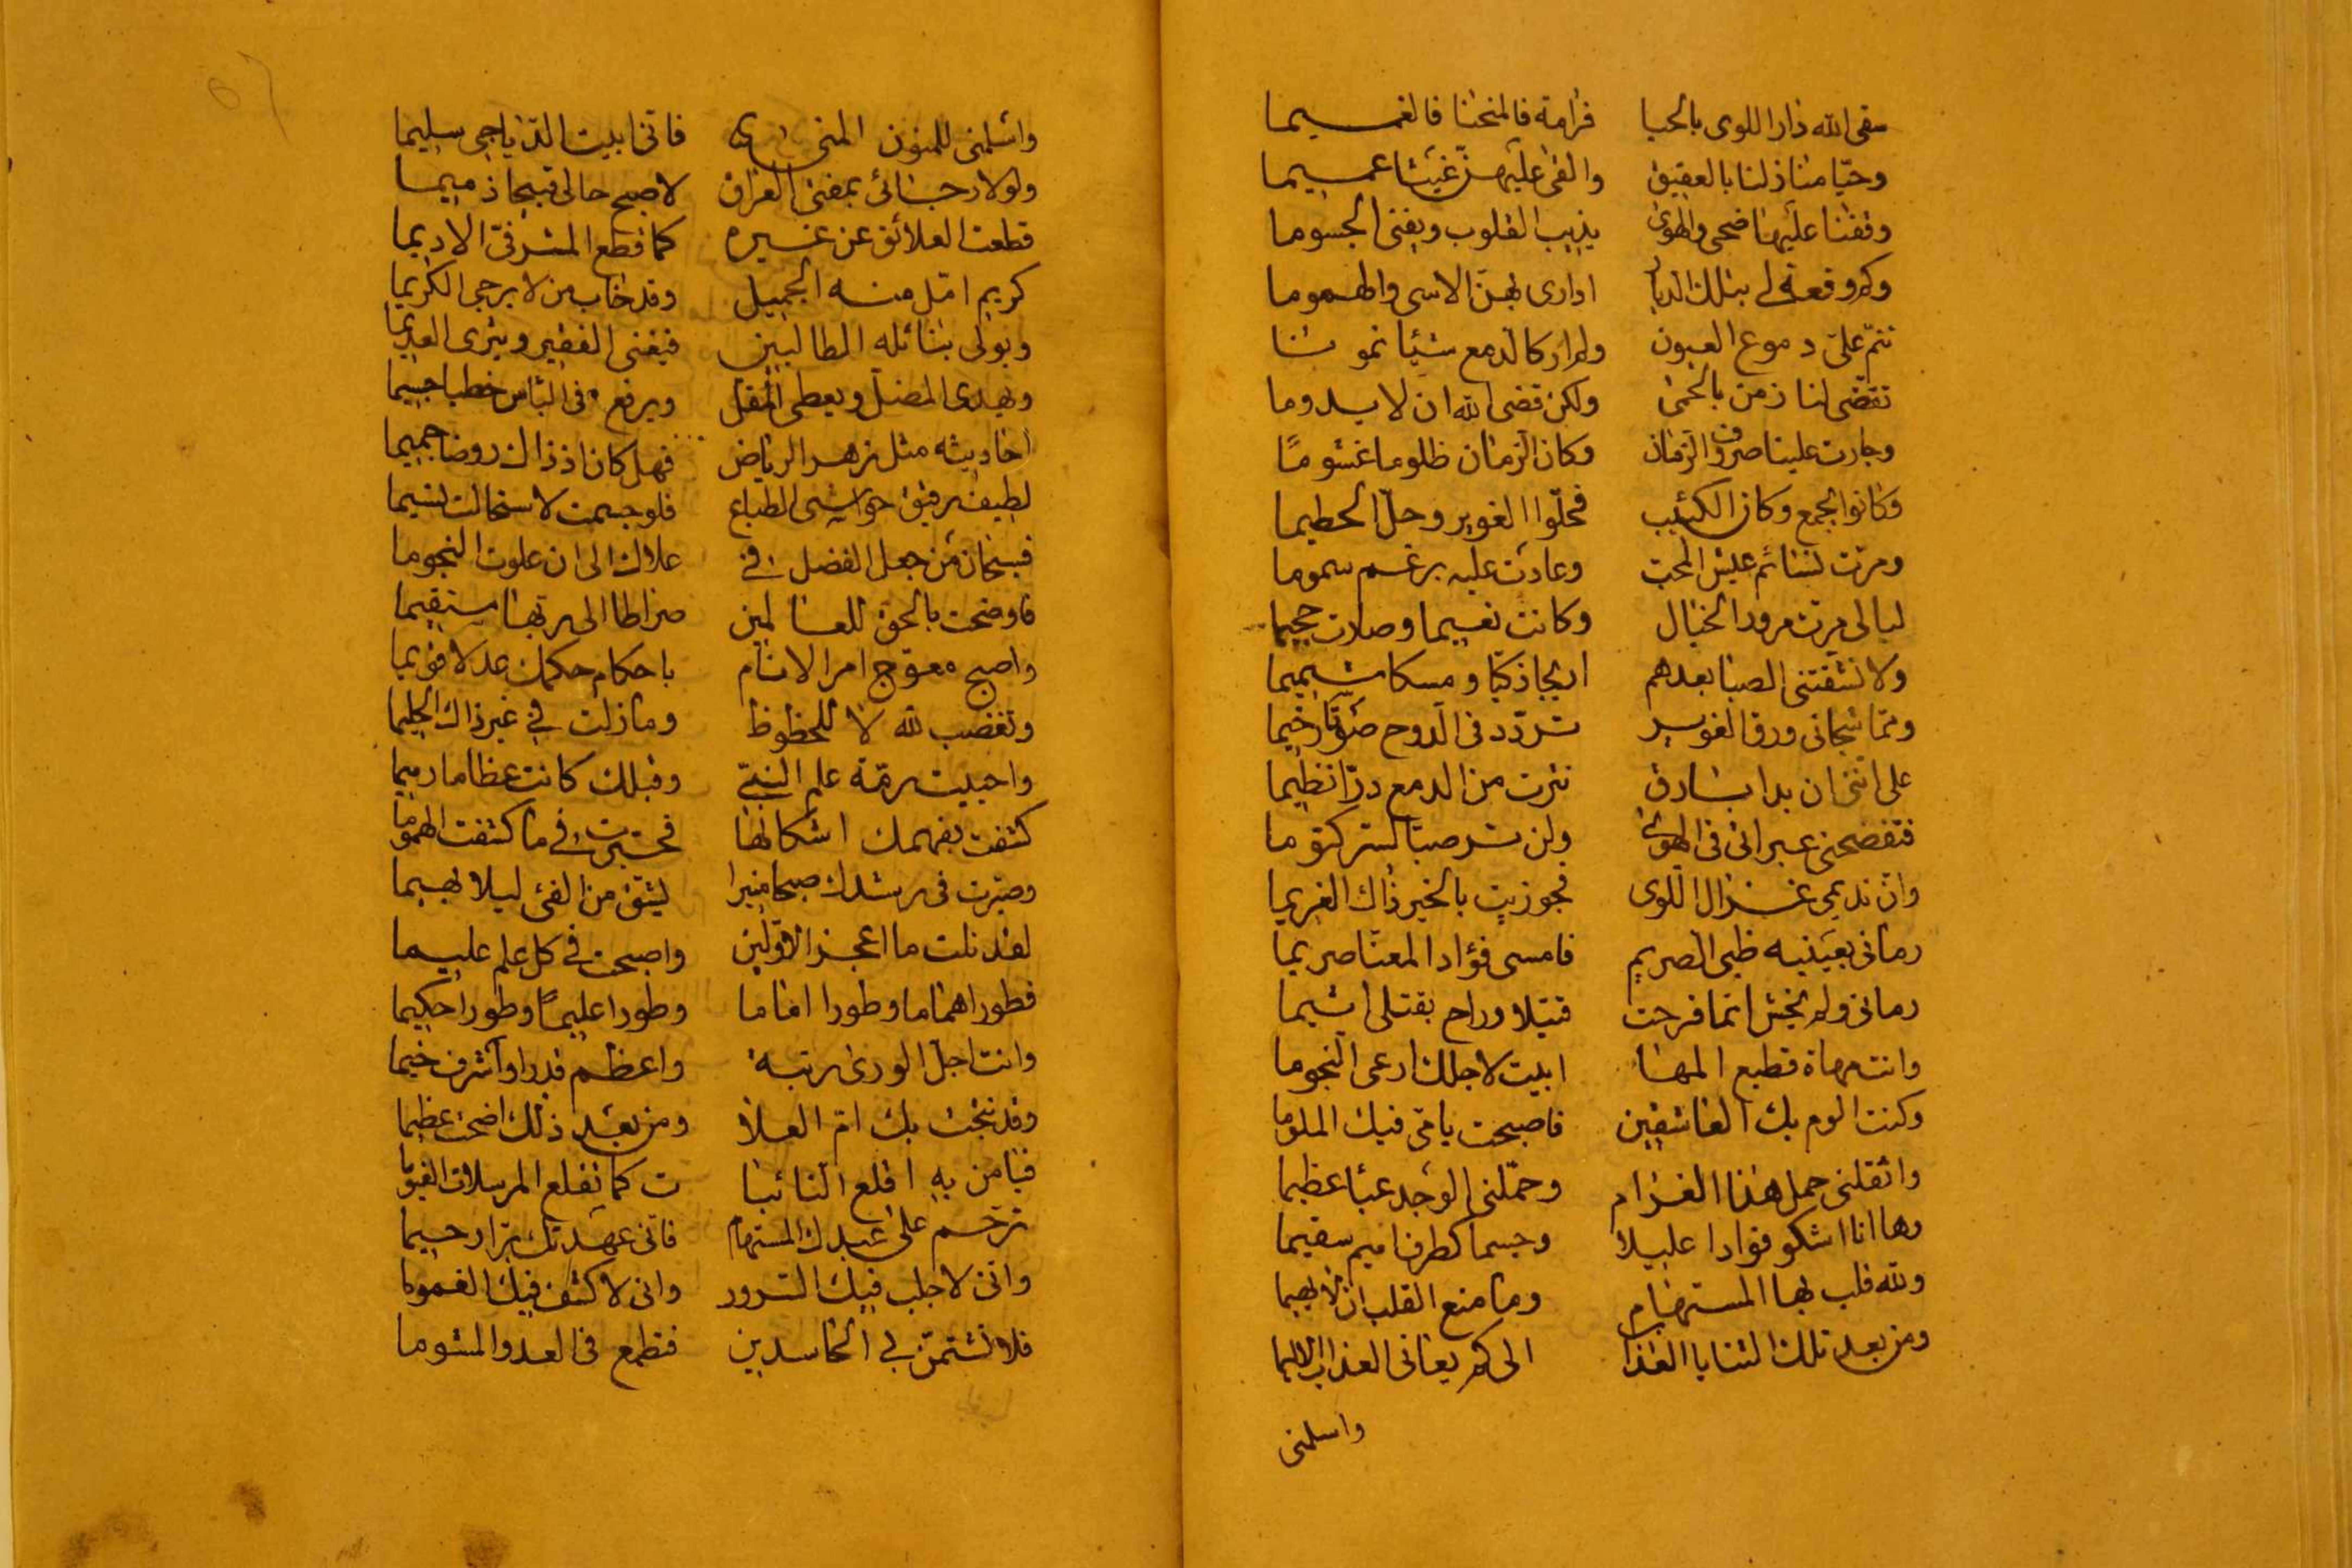 سقى الله دار اللوى بالحيا فرامة فالمنحنا فالغميما
وحيّا منازلنا بالعقيق والقى عليهنّ غيثا عميما
وقفنا عليها ضحى والهوى يذيب القلوب ويفنى الجسوما
وكم وقعة لى بتلك الديار ادارى بهنّ الاسى والهموما
تنمّ علىّ دموع العيون ولم ار كالدمع شيئا نموما
تقضّى لنا زمن بالحمى ولكن قضى الله ان لا يدوما
وجارت علينا صروف الزمان وكان الزمان ظلوما غشومًا
وكانوا بجمع وكان الكئيب فحلّوا الغوير وحلّ الحطيما
ومرّت نسائم عيش المحبّ وعادت عليه برغم سموما
ليالى مرّت مرور الخيال وكانت نعيما وصارت جحيما
ولا نشقتنى الصبا بعدهم اريجا ذكيّا ومسكا شميما
وممّا شجانى ورق الغوير تردّد فى الدوح صوتا رخيما
على اننى ان بدا بارق نثرت من الدمع درّا نظيما
فتفضحنى عبراتى فى الهوى ولن تر صبّا لسرّ كتوما
وانّ نديمى غزال اللوى فجوزيت بالخير ذاك الغريما
رمانى بعينيه ظبى الصريم فامسى فؤاد المعنّا صريما
رمانى ولم يخش اثما فرحت قتيلا وراح بقتلى اثيما
وانت مهاة قطيع المها ابيت لاجلك ارعى النجوما
وكنت الوم بك العاشقين فاصبحت يا مىّ فيك الملوما
واثقلنى حمل هذا الغرام وحمّلنى الوجد عبئا عظيما
وها انا اشكو فؤادا عليلا وجسما كطرف اميم سقيما
ولله قلب بها المستهام وما منع القلب ان لا يهيما
ومن بعد تلك الثنايا العذاب الى كم يعانى العذاب الاليما
واسلمنى
واسلمنى للمنون المنى فانى ابيت الدياجى سليما
ولولا رجائى بمفتى العراق لاصبح حالى قبيحا ذميما
قطعت العلائق عن غيره كما قطع المشرفىّ الاديما
كريم امّل منه الجميل وقد خاب من لا يرجى الكريما
ويولى بنائله الطالبين فيغنى الفقير ويثرى العديما
ويهدى المضلّ ويعطى المقلّ ويرفع فى الناس خطبا جسيما
احاديثه مثل زهر الرياض فهل كان اذ ذاك روضا جميما
لطيف رقيق حواشى الطباع فلو جسمت لاستحالت نسيما
فسبحان من جعل الفضل فى علاك الى ان علوت النجوما
فاوضحت بالحق للعالمين صراطا الى ربّها مستقيما
واصبح معوّج امر الانام باحكام حكمك عدلا قويما
وتغضب لله لا للحظوظ وما زلت فى غير ذاك الحليما
واحييت رمّة علم النبىّ وقبلك كانت عظاما رميما
كشفت بفهمك اشكالها فحيّرت فى ما كشفت الفهوما
وصيّرت فى رشدك صبحا منيرا ليشقّ من الغىّ ليلا بهيما
لقد نلت ما اعجز الاوّلين واصبحت فى كل علم عليما
فطورا هماما وطورا اماما وطورا عليمًا وطورا حكيما
وانت اجلّ الورى رتبة واعظم قدرا واشرف خيما
وقد نتجت بك امّ العلا ومن بعد ذلك اضحت عظيما
فيا من به اقلع النائبا ت كما تقلع المرسلات الغيوما
ترحّم على عبدك المستهام فانى عهدتك برّا رحيما
وانّى لاجلب فيك السرور وانى لاكشف فيك الغموما
فلا تشتمنّ بى الحاسدين فتطمع فىّ العدو المشوما